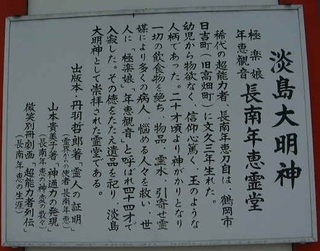 淡島大明神
極楽娘
年恵観音
長南年恵霊堂
稀代の超能力者、長南年恵刀自は、鶴岡市
日吉町(旧高畑町)に文久三年生れた。
幼児から物欲なく、信仰心篤く、玉のような
人柄であった。二十才頃より神がかりとなり
一切の飲食物を絶ち、物品、霊水、引寄せ霊
媒により多くの病人、悩める人々を救い、世
人に「極楽娘、年恵観音」と呼ばれ四十四才で
入寂した。その徳をたたえ遺品を祀り、淡島
大明神として崇拝された霊堂である。
出版本・丹羽哲郎著「霊人の証明」
(霊界からの使者・長南年恵)
山本貴美子著「神通力の発現」
微笑別冊劇画「超能力者列伝
長南年恵の生涯」